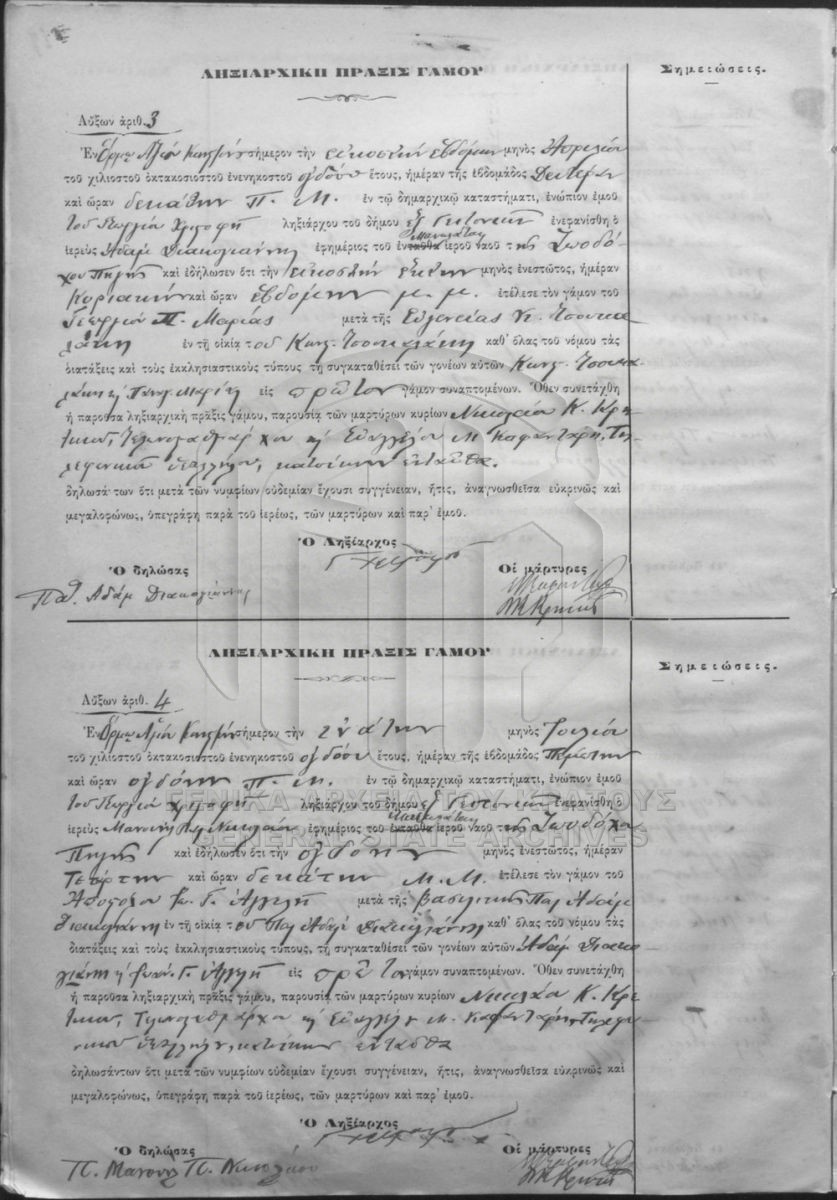 ΛΗΞΙΑΡΧΙΚΗ ΠΡΑΞΙΣ ΓΑΜΟΥ
Σημειώσεις.
Αὔξων ἀριθ. 3
Ἐν σήμερον τὴν εἰκοστὴν ἑβδόμην μηνὸς Ἀπριλίου
τοῦ χιλιοστοῦ ὀκτακοσιοστοῦ ἐνενηκοστοῦ ὀγδόου ἔτους, ἡμέραν τῆς ἑβδομάδος Δευτέραν
καὶ ὥραν δεκάτην Π. Μ. ἐν τῷ δημαρχικῷ καταστήματι, ἐνώπιον ἐμοῦ
τοῦ Γεωργίου ληξιάρχου τοῦ δήμου ἐξ Γειτονιῶν ἐνεφανίσθη ὁ
ἱερεὺς Ἀδάμ Διακογιάννης ἐφημέριος τοῦ ἐνταῦθα ἱεροῦ ναοῦ τῆς Ζωοδό-
χου Πηγῆς καὶ ἐδήλωσεν ὅτι τὴν εἰκοστὴν ἕκτην μηνὸς ἐνεστῶτος, ἡμέραν
Κυριακὴν καὶ ὥραν ἑβδόμην μ. μ. ἐτέλεσε τὸν γάμον τοῦ
Γεωργίου Π. Μαρίας μετὰ τῆς Εὐγενείας Κ. Τσουκα
λάκη ἐν τῇ οἰκίᾳ τοῦ Κωνσ. Τσουκαλάκη καθ᾽ ὅλας τοῦ νόμου τὰς
διατάξεις καὶ τοὺς ἐκκλησιαστικοὺς τύπους τῇ συγκαταθέσει τῶν γονέων αὐτῶν Κωνσ. Τσουκα-
λάκη εἰς πρῶτον γάμον συναπτομένων. Ὅθεν συνετάχθη
ἡ παροῦσα ληξιαρχικὴ πρᾶξις γάμου, παρουσίᾳ τῶν μαρτύρων κυρίων Νικολάου Κ. Κρη-
τικοῦ, Τελωνοσταθμάρχου Εὐαγγέλου Μ. Καφαντάρη, Τη-
λεφωνικοῦ ὑπαλλήλου, κατοίκων ἐνταῦθα.
δηλωσάντων ὅτι μετὰ τῶν νυμφίων οὐδεμίαν ἔχουσι συγγένειαν, ἥτις, ἀναγνωσθεῖσα εὐκρινῶς καὶ
μεγαλοφώνως, ὑπεγράφη παρὰ τοῦ ἱερέως, τῶν μαρτύρων καὶ παρ᾽ ἐμοῦ.
Ὁ Ληξίαρχος
Ὁ δηλώσας
Οἱ μάρτυρες
Παπ. Ἀδάμ Διακογιάννης
ΛΗΞΙΑΡΧΙΚΗ ΠΡΑΞΙΣ ΓΑΜΟΥ
Σημειώσεις.
Αὔξων ἀριθ. 4
Ἐν σήμερον τὴν ἐνάτην μηνὸς Ἰουλίου
τοῦ χιλιοστοῦ ὀκτακοσιοστοῦ ἐνενηκοστοῦ ὀγδόου ἔτους, ἡμέραν τῆς ἑβδομάδος Πέμπτην
καὶ ὥραν ὀγδόην Π. Μ. ἐν τῷ δημαρχικῷ καταστήματι, ἐνώπιον ἐμοῦ
τοῦ Γεωργίου ληξιάρχου τοῦ δήμου ἐξ Γειτονιῶν ἐνεφανίσθη ὁ
ΓΕΝΙΚΑ ΑΡΧΕΙΑ ΤΟΥ ΚΡΑΤΟΥΣ
ἱερεὺς Μανουὴλ Νικολάου ἐφημέριος τοῦ ἐνταῦθα ἱεροῦ ναοῦ τῆς Ζωοδόχου
GENERAL STATE ARCHIVES
Πηγῆς καὶ ἐδήλωσεν ὅτι τὴν ὀγδόην μηνὸς ἐνεστῶτος, ἡμέραν
Τετάρτην καὶ ὥραν δεκάτην Μ. Μ. ἐτέλεσε τὸν γάμον τοῦ
μετὰ τῆς Βασιλικῆς Παπ Ἀδάμ
Διακογιάννη ἐν τῇ οἰκίᾳ τοῦ Παπ Ἀδάμ Διακογιάννη καθ᾽ ὅλας τοῦ νόμου τὰς
διατάξεις καὶ τοὺς ἐκκλησιαστικοὺς τύπους, τῇ συγκαταθέσει τῶν γονέων αὐτῶν Ἀδάμ Διακο
γιάννη εἰς πρῶτον γάμον συναπτομένων. Ὅθεν συνετάχθη
ἡ παροῦσα ληξιαρχικὴ πρᾶξις γάμου, παρουσίᾳ τῶν μαρτύρων κυρίων Νικολάου Κ. Κρη-
τικοῦ, Τελωνοσταθμάρχου Εὐαγγέλου Μ. Καφαντάρη, Τηλεφω
νικοῦ ὑπαλλήλου, κατοίκων ἐνταῦθα
δηλωσάντων ὅτι μετὰ τῶν νυμφίων οὐδεμίαν ἔχουσι συγγένειαν, ἥτις, ἀναγνωσθεῖσα εὐκρινῶς καὶ
μεγαλοφώνως, ὑπεγράφη παρὰ τοῦ ἱερέως, τῶν μαρτύρων καὶ παρ᾽ ἐμοῦ.
Ὁ Ληξίαρχος
Ὁ δηλώσας
Οἱ μάρτυρες
Π. Μανουὴλ Π. Νικολάου